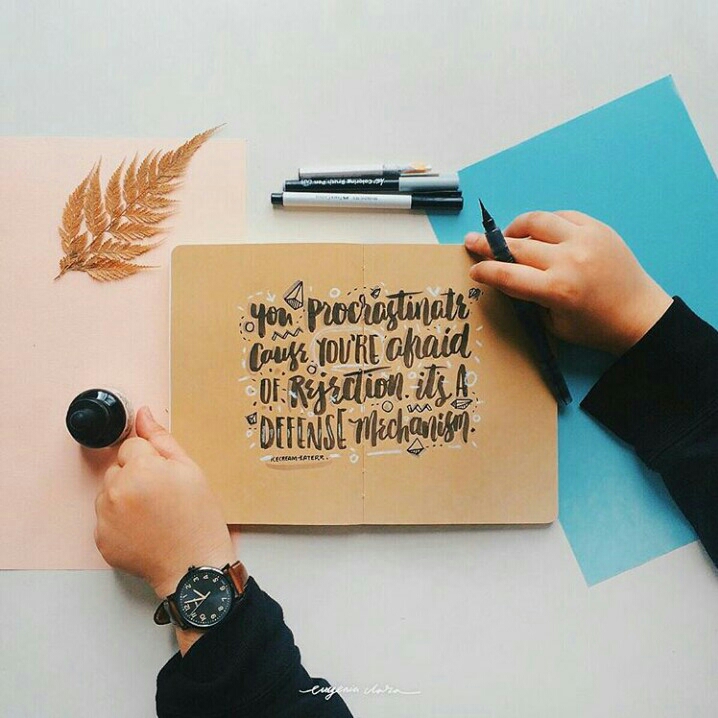 You Procrastinate
Cause YOU'RE afraid
OF Rejection. it's A
DEFENSE Mechanism.
eugenia clara